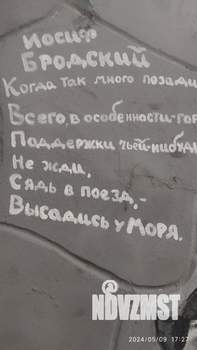 Иосиф
Бродский
Когда так много позади
Всего, в особенности-гор
Поддержки чьей-нибудь
Не жди,
Сядь в поезд,-
Высадись у Моря.
NDVZMST
2024/05/09 17:27